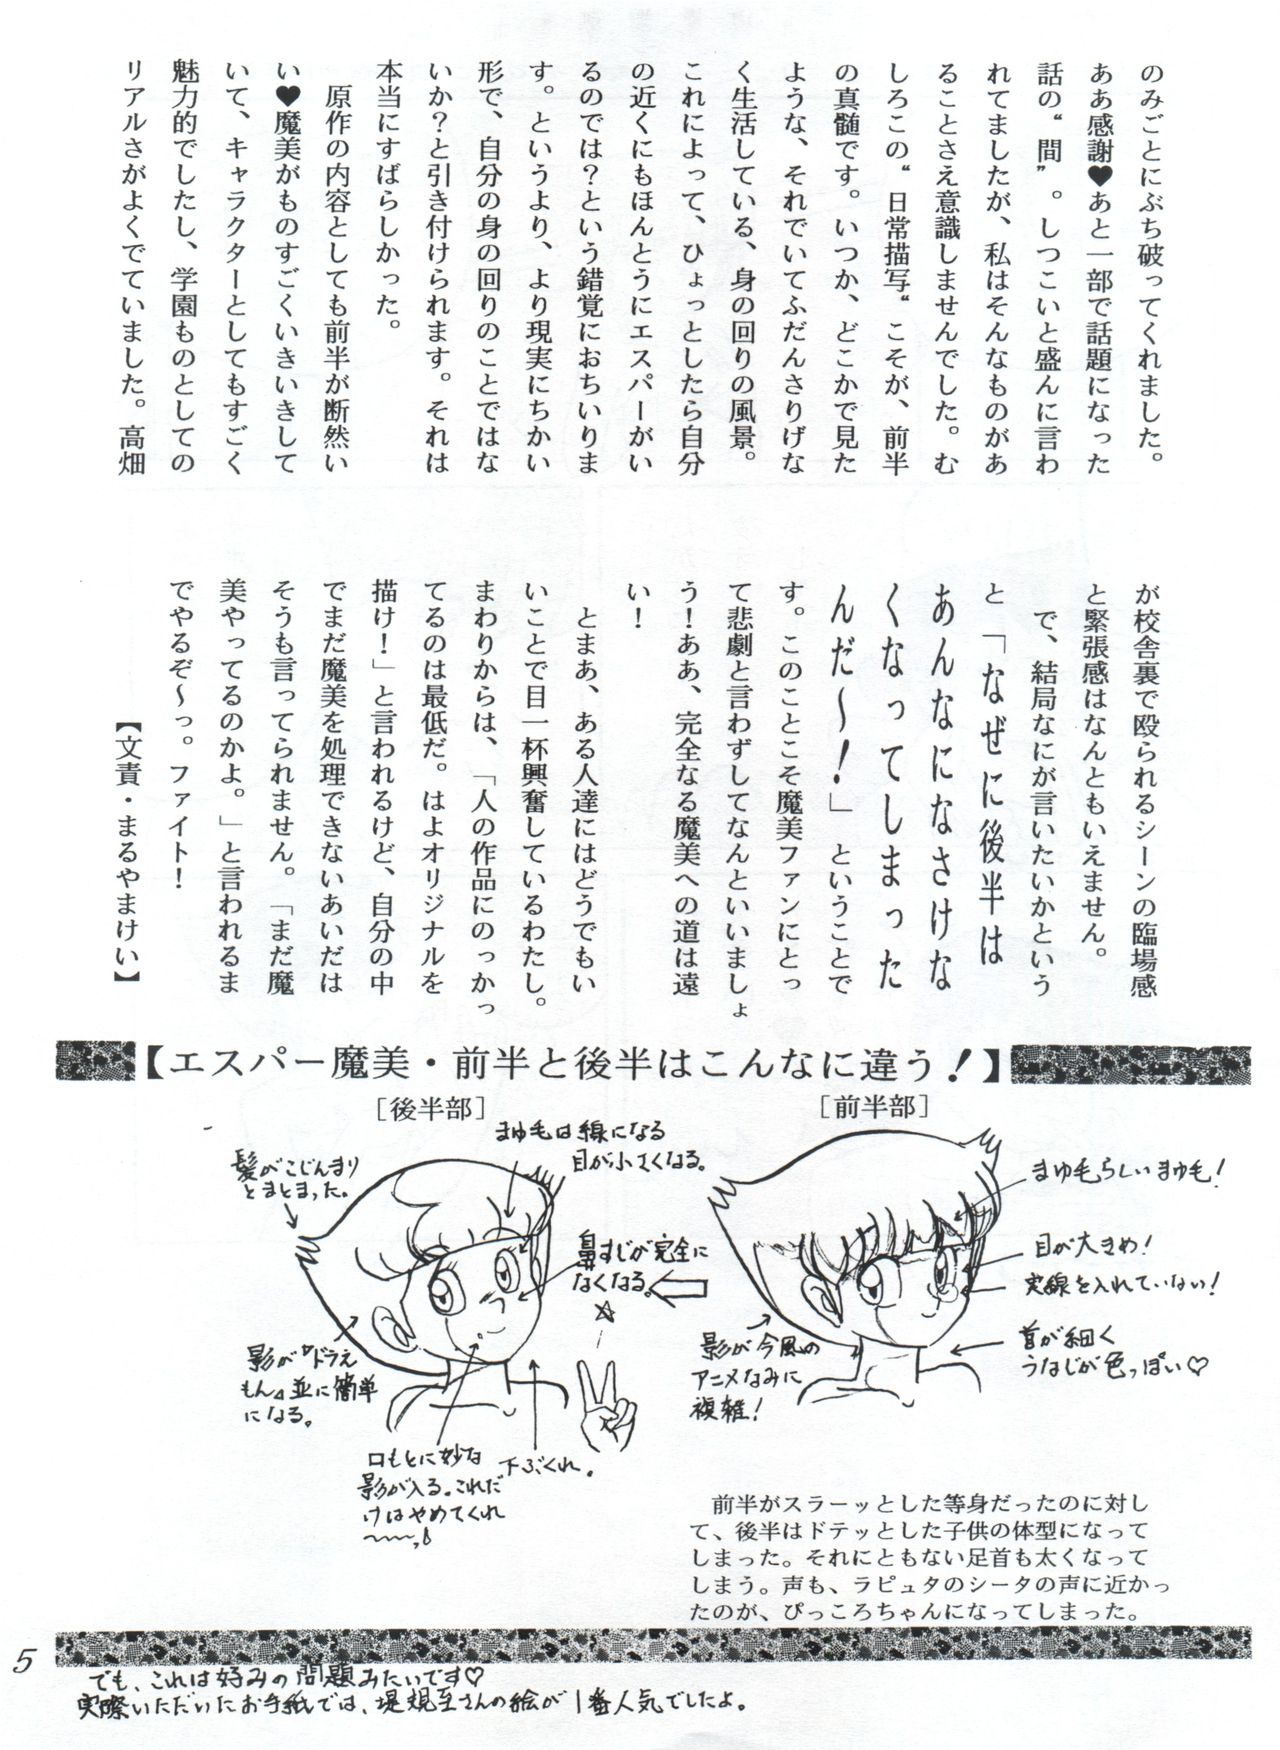 のみごとにぶち破ってくれました。
ああ感謝♥あと一部で話題になった
話の“間”。しつこいと盛んに言わ
れてましたが、私はそんなものがあ
ることさえ意識しませんでした。む
しろこの“日常描写“こそが、前半
の真髄です。いつか、どこかで見た
ような、それでいてふだんさりげな
く生活している、身の回りの風景。
これによって、ひょっとしたら自分
の近くにもほんとうにエスパーがい
るのでは?という錯覚におちいりま
す。というより、より現実にちかい
形で、自分の身の回りのことではな
いか?と引き付けられます。それは
本当にすばらしかった。
原作の内容としても前半が断然い
い♥魔美がものすごくいきいきして
いて、キャラクターとしてもすごく
魅力的でしたし、学園ものとしての
リアルさがよくでていました。高畑
が校舎裏で殴られるシーンの臨場感
と緊張感はなんともいえません。
で、結局なにが言いたいかという
と「なぜに後半は
あんなになさけな
くなってしまった
んだ〜!」ということで
す。このことこそ魔美ファンにとっ
て悲劇と言わずしてなんといいましょ
う!ああ、完全なる魔美への道は遠
い!
とまあ、ある人達にはどうでもい
いことで目一杯興奮しているわたし。
まわりからは、「人の作品にのっかっ
てるのは最低だ。はよオリジナルを
描け!」と言われるけど、自分の中
でまだ魔美を処理できないあいだは
そうも言ってられません。「まだ魔
美やってるのかよ。」と言われるま
でやるぞ〜っ。ファイト!
【文責・まるやまけい】
【エスパー魔美・前半と後半はこんなに違う!】
[前半部]
まゆ毛らしいまゆ毛!
目が大きめ!
実線を入れていない!
首が細く
うなじが色っぽい♡
影が今風の
アニメなみに
複雑!
[後半部]
まゆ毛は線になる
目が小さくなる。
髪がこじんまり
とまとまった。
鼻すじが完全に
なくなる。
影が『ドラえ
もん』並に簡単
になる。
口もとに妙な
影が入る。これだ
けはやめてくれ
〜〜っ
下ぶくれ。
前半がスラーッとした等身だったのに対し
て、後半はドテッとした子供の体型になって
しまった。それにともない足首も太くなって
しまう。声も、ラピュタのシータの声に近かっ
たのが、ぴっころちゃんになってしまった。
でも、これは好みの問題みたいです♡
実際いただいたお手紙では、堤規至さんの絵が1番人気でしたよ。
5